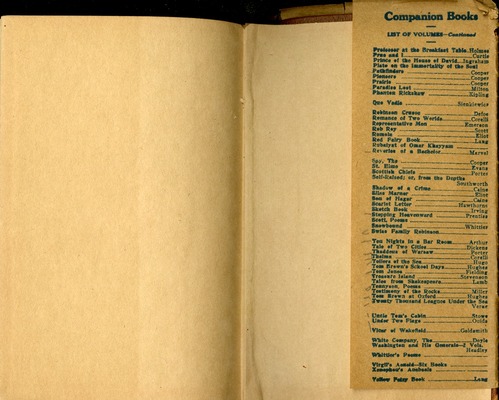 Companion Books
LIST OF VOLUMES—Continued
Professor at the Breakfast Table..Holmes
Prue and I..........Curtis
Prince of the House of David...Ingraham
Plato on the Immortality of the Soul
Pathfinders..........Cooper
Pioneers..........Cooper
Prairie..........Cooper
Paradise Lost..........Milton
Phantom Rickshaw..........Kipling
Quo Vadis..........Sienkiewicz
Robinson Crusoe..........Defoe
Romance of Two Worlds..........Corelli
Representative Men..........Emerson
Rob Roy..........Scott
Romola..........Eliot
Red Fairy Book..........Lang
Rubaiyat of Omar Khayyam
Reveries of a Bachelor..........Marvel
Spy, The..........Cooper
St. Elmo..........Evans
Scottish Chiefs..........Porter
Self-Raised; or, from the Depths
Southworth
Shadow of a Crime..........Caine
Silas Marner..........Eliot
Son of Hagar..........Caine
Scarlet Letter..........Hawthorne
Sketch Book..........Irving
Stepping Heavenward..........Prentiss
Scott, Poems
Snowbound..........Whittier
Swiss Family Robinson
Ten Nights in a Bar Room..........Arthur
Tale of Two Cities..........Dickens
Thaddeus of Warsaw..........Porter
Thelma..........Corelli
Toilers of the Sea..........Hugo
Tom Brown's School Days..........Hughes
Tom Jones..........Fielding
Treasure Island..........Stevenson
Tales from Shakespeare..........Lamb
Tennyson, Poems
Testimony of the Rocks..........Miller
Tom Brown at Oxford..........Hughes
Twenty Thousand Leagues Under the Sea
Verne
Uncle Tom's Cabin..........Stowe
Under Two Flags..........Ouida
Vicar of Wakefield..........Goldsmith
White Company, The..........Doyle
Washington and His Generals—2 Vols.
Headley
Whittier's Poems
Virgil's Aeneid—Six Books
Xenophon's Anabasis
Yellow Fairy Book..........Lang